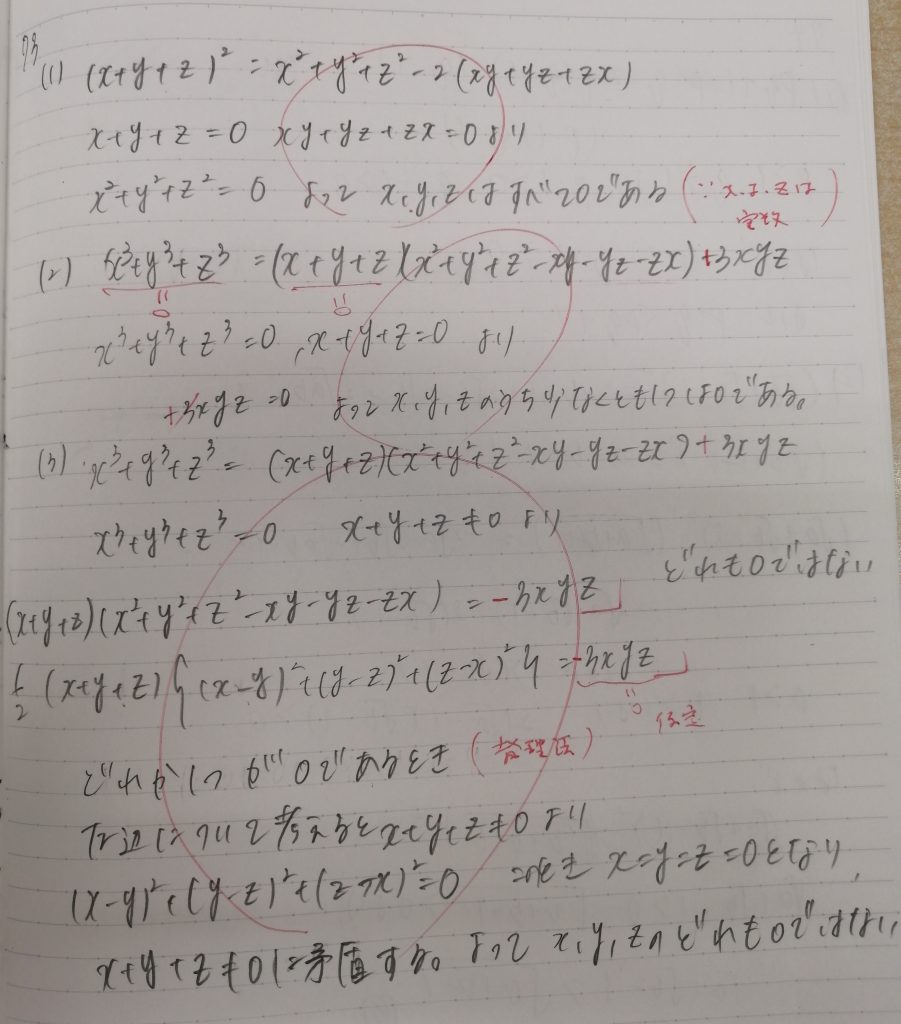 73
(1) (x+y+z)² = x²+y²+z²-2(xy+yz+zx)
x+y+z=0 xy+yz+zx=0 より
x²+y²+z²=0 よって x,y,zはすべて0である (∵ x,y,zは実数)
(2) x³+y³+z³ = (x+y+z)(x²+y²+z²-xy-yz-zx)+3xyz
=0 =0
x³+y³+z³=0, x+y+z=0 より
+3xyz=0 よって x,y,zのうち少なくとも1つは0である。
(3) x³+y³+z³= (x+y+z)(x²+y²+z²-xy-yz-zx)+3xyz
x³+y³+z³=0 x+y+z≠0 より
どれも0ではない
(x+y+z)(x²+y²+z²-xy-yz-zx) =-3xyz
1/2 (x+y+z){(x-y)²+(y-z)²+(z-x)²}=-3xyz
=0 仮定
どれか1つが0であるとき (背理法)
左辺について考えるとx+y+z≠0より
(x-y)²+(y-z)²+(z-x)²=0 このとき x=y=z=0となり,
x+y+z≠0に矛盾する。よって x,y,zのどれも0ではない